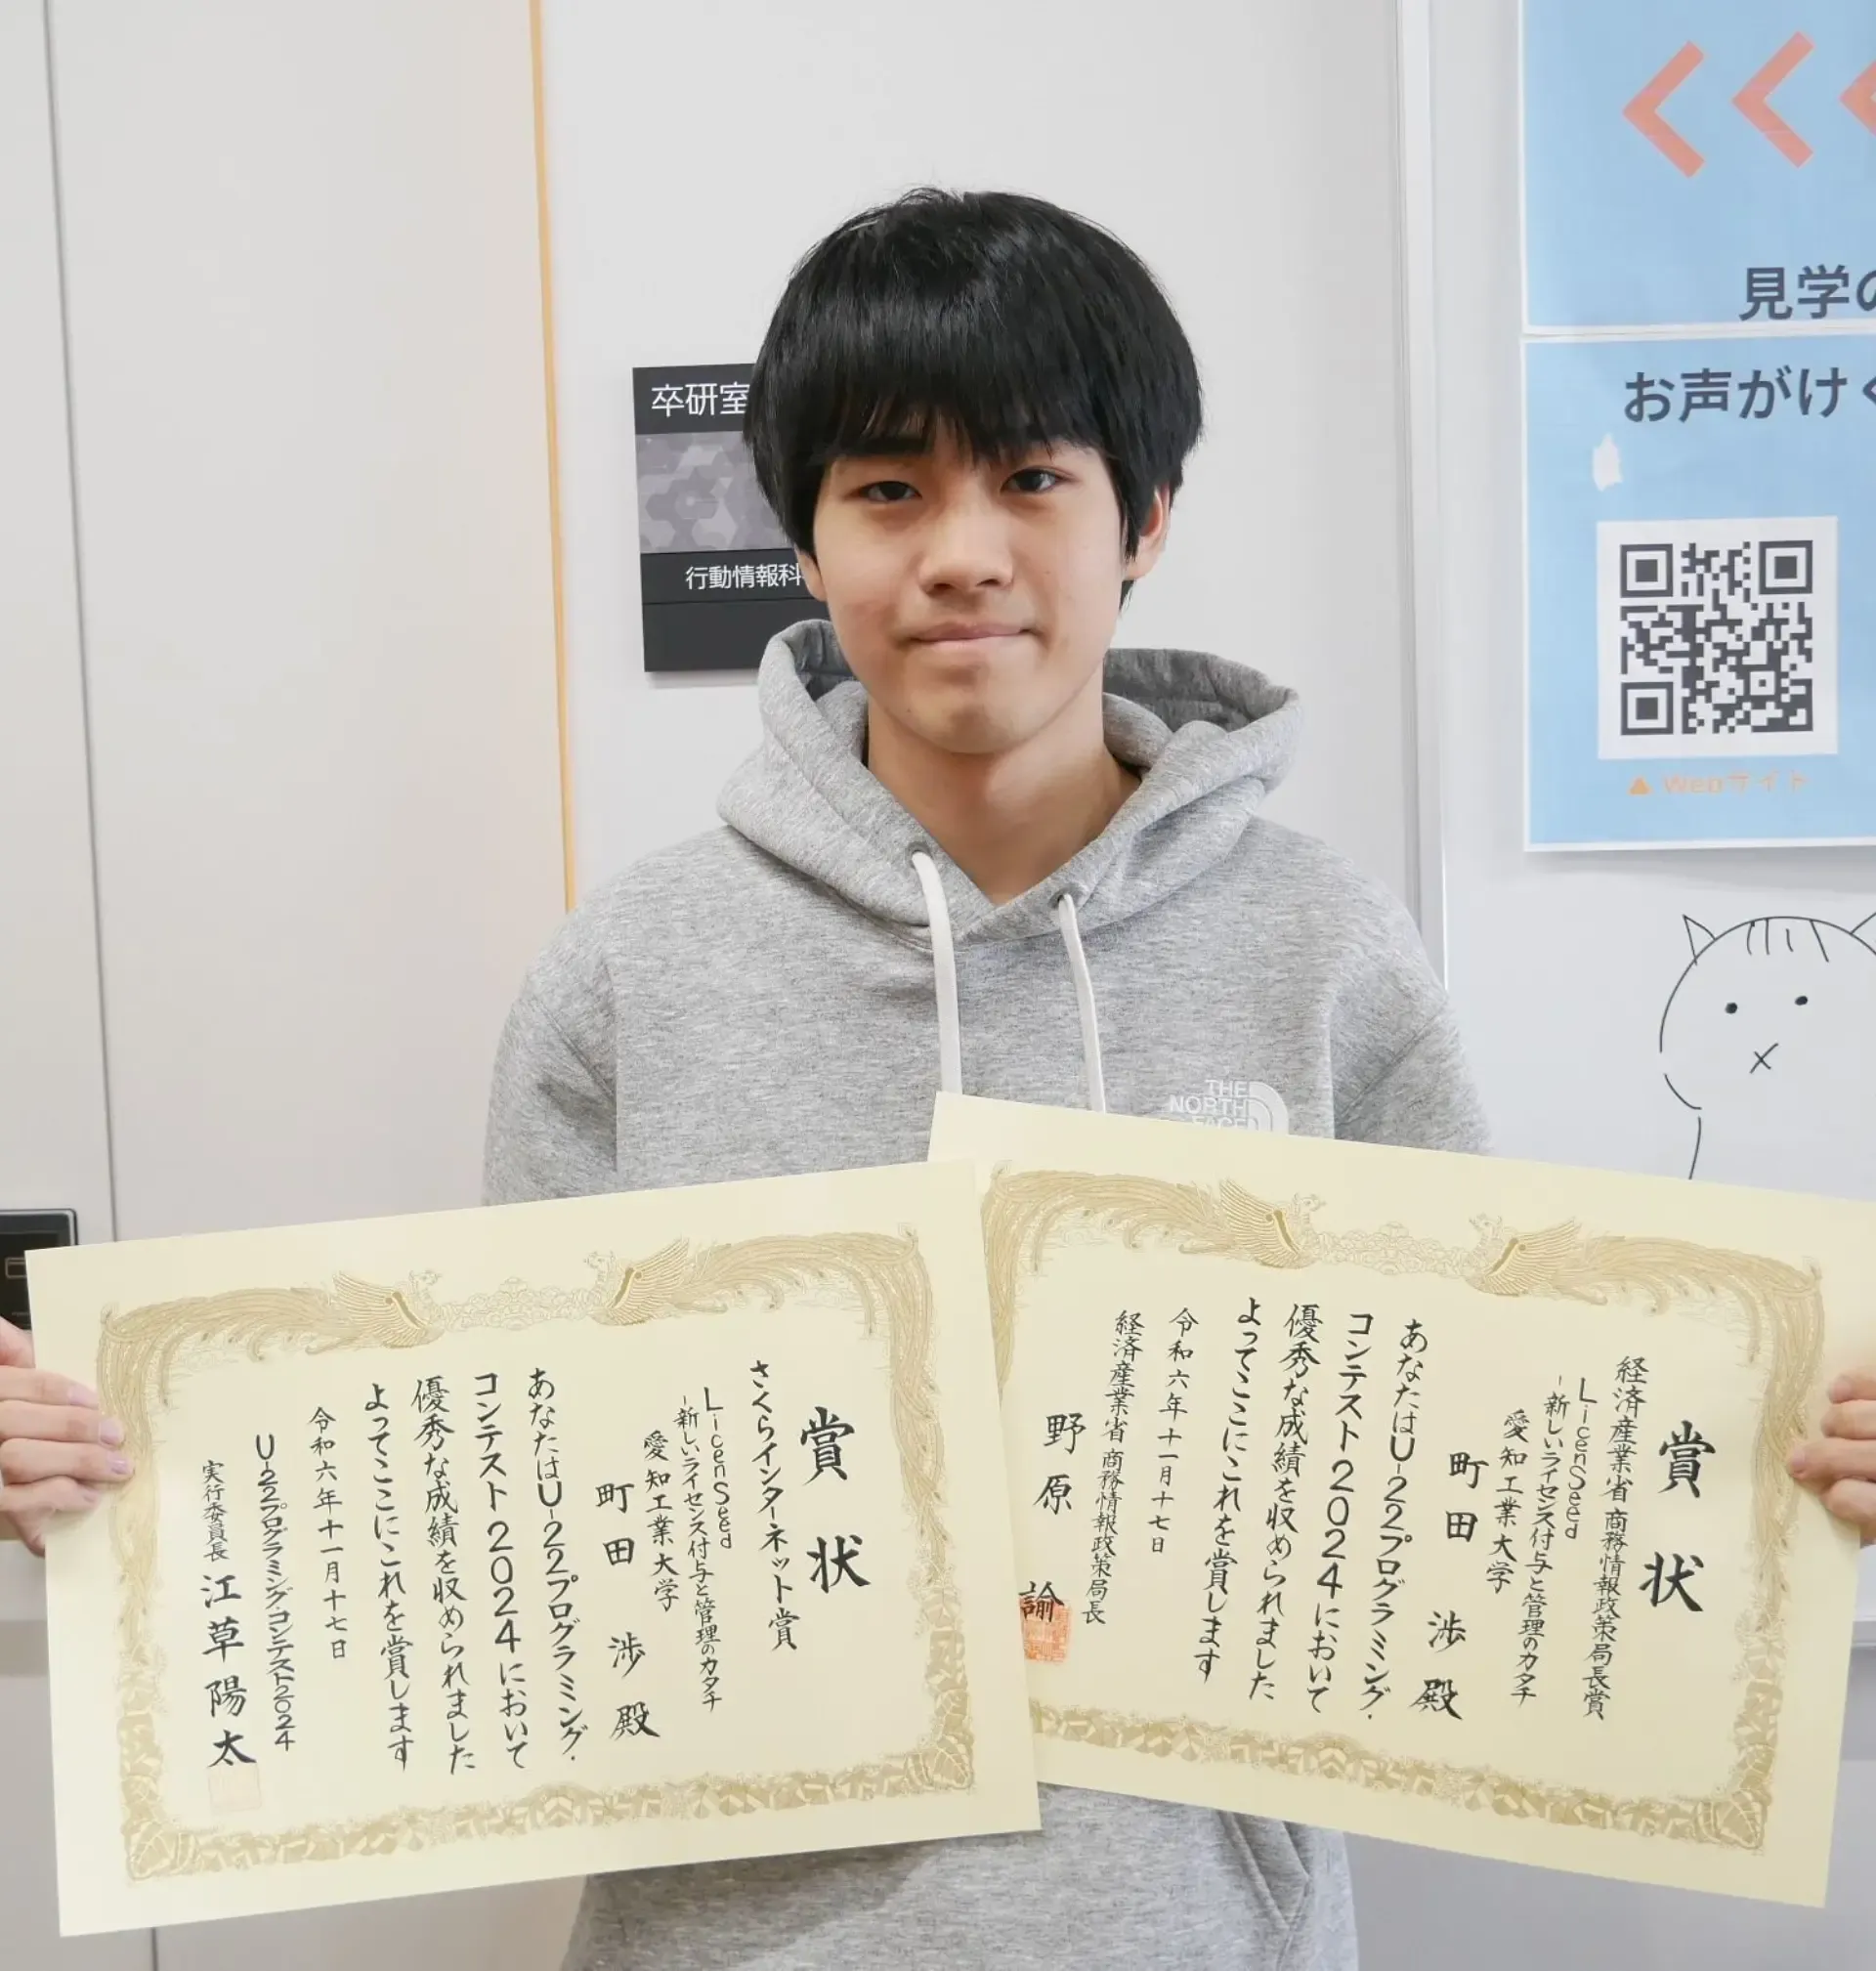 見学の
お声がけく
▲ Webサイト
卒研室
行動情報科
THE
NORTH
FACE
賞状
経済産業省 商務情報政策局長賞
LicenSeed
-新しいライセンス付与と管理のカタチ
愛知工業大学
町田 渉 殿
あなたはU-22プログラミング・
コンテスト2024において
優秀な成績を収められました
よってここにこれを賞します
令和六年十一月十七日
経済産業省 商務情報政策局長
野原 諭
賞状
さくらインターネット賞
LicenSeed
-新しいライセンス付与と管理のカタチ
愛知工業大学
町田 渉 殿
あなたはU-22プログラミング・
コンテスト2024において
優秀な成績を収められました
よってここにこれを賞します
令和六年十一月十七日
U-22プログラミング・コンテスト2024
実行委員長 江草陽太